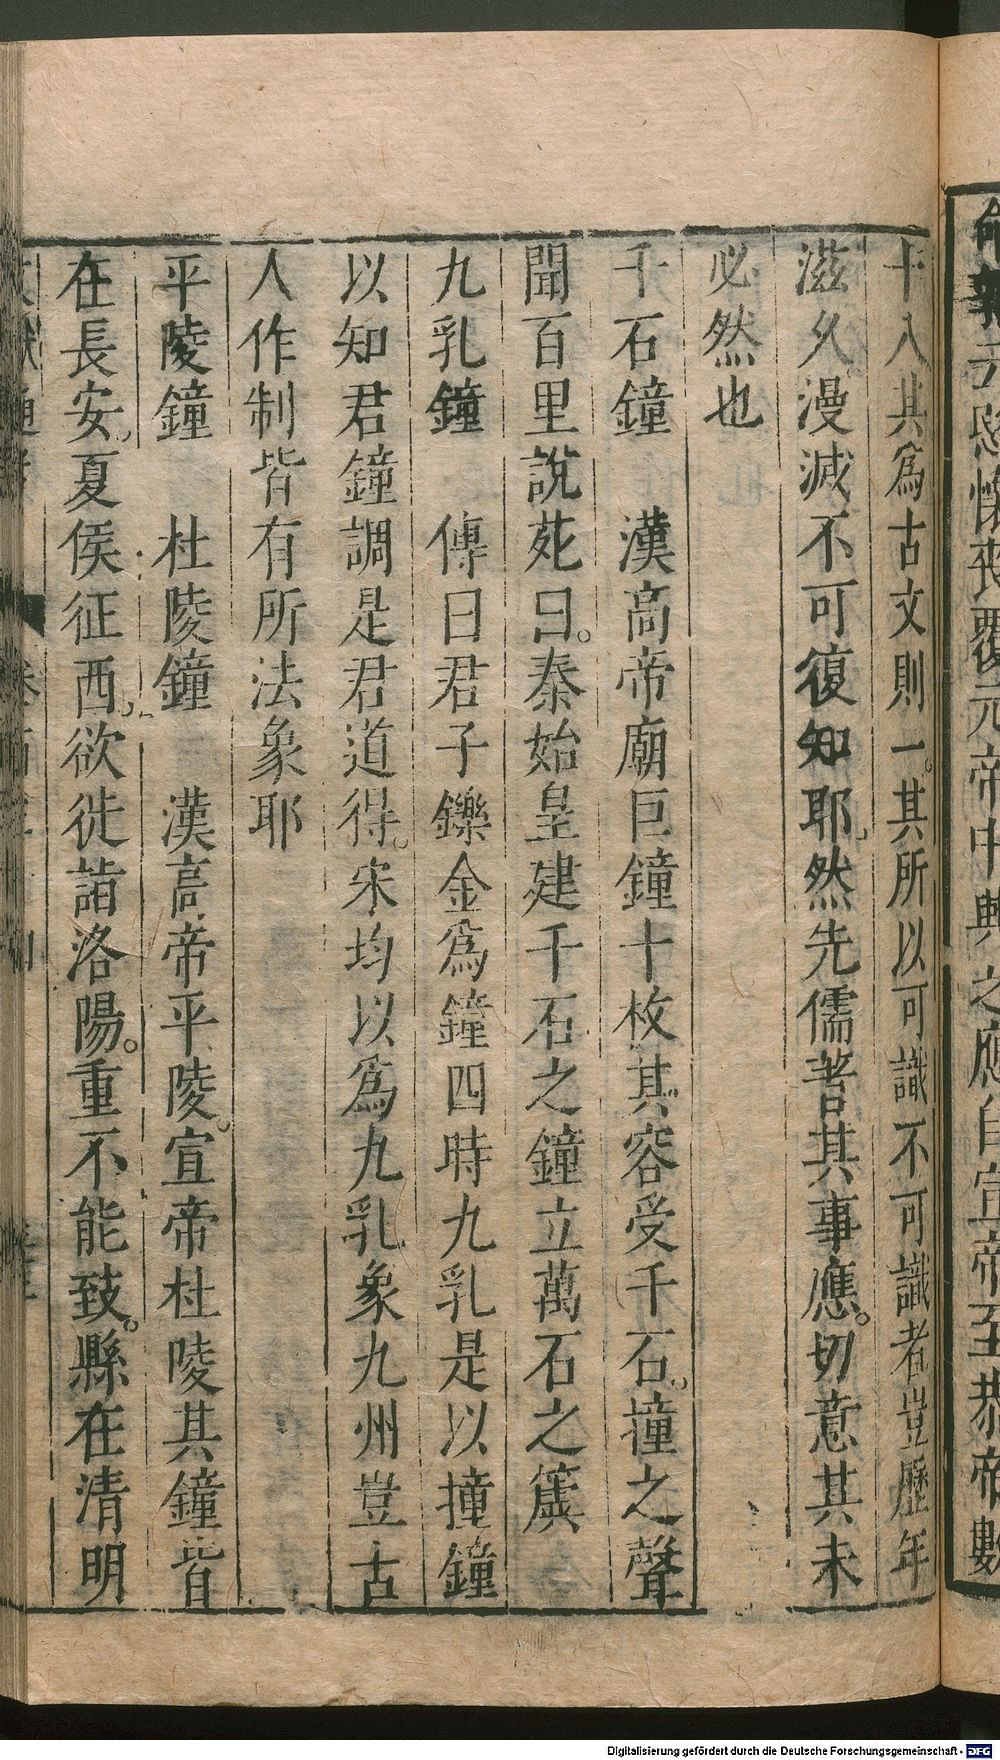 元帝中興之應自宣帝至恭帝數
十八其爲古文則一。其所以可識不可識者豈歷年
滋久漫滅不可復知耶然先儒著其事應。切意其未
必然也
千石鐘　漢高帝廟巨鐘十枚其容受千石。撞之聲
聞百里說苑曰。秦始皇建千石之鐘立萬石之簴
九乳鐘　傳曰君子鑠金爲鐘四時九乳是以撞鐘
以知君鐘調是君道得。宋均以爲九乳象九州豈古
人作制皆有所法象耶
平陵鐘　杜陵鐘　漢高帝平陵。宣帝杜陵其鐘皆
在長安。夏侯征西。欲徙詣洛陽。重不能致。縣在清明
Digitalisierung gefördert durch die Deutsche Forschungsgemeinschaft - DFG